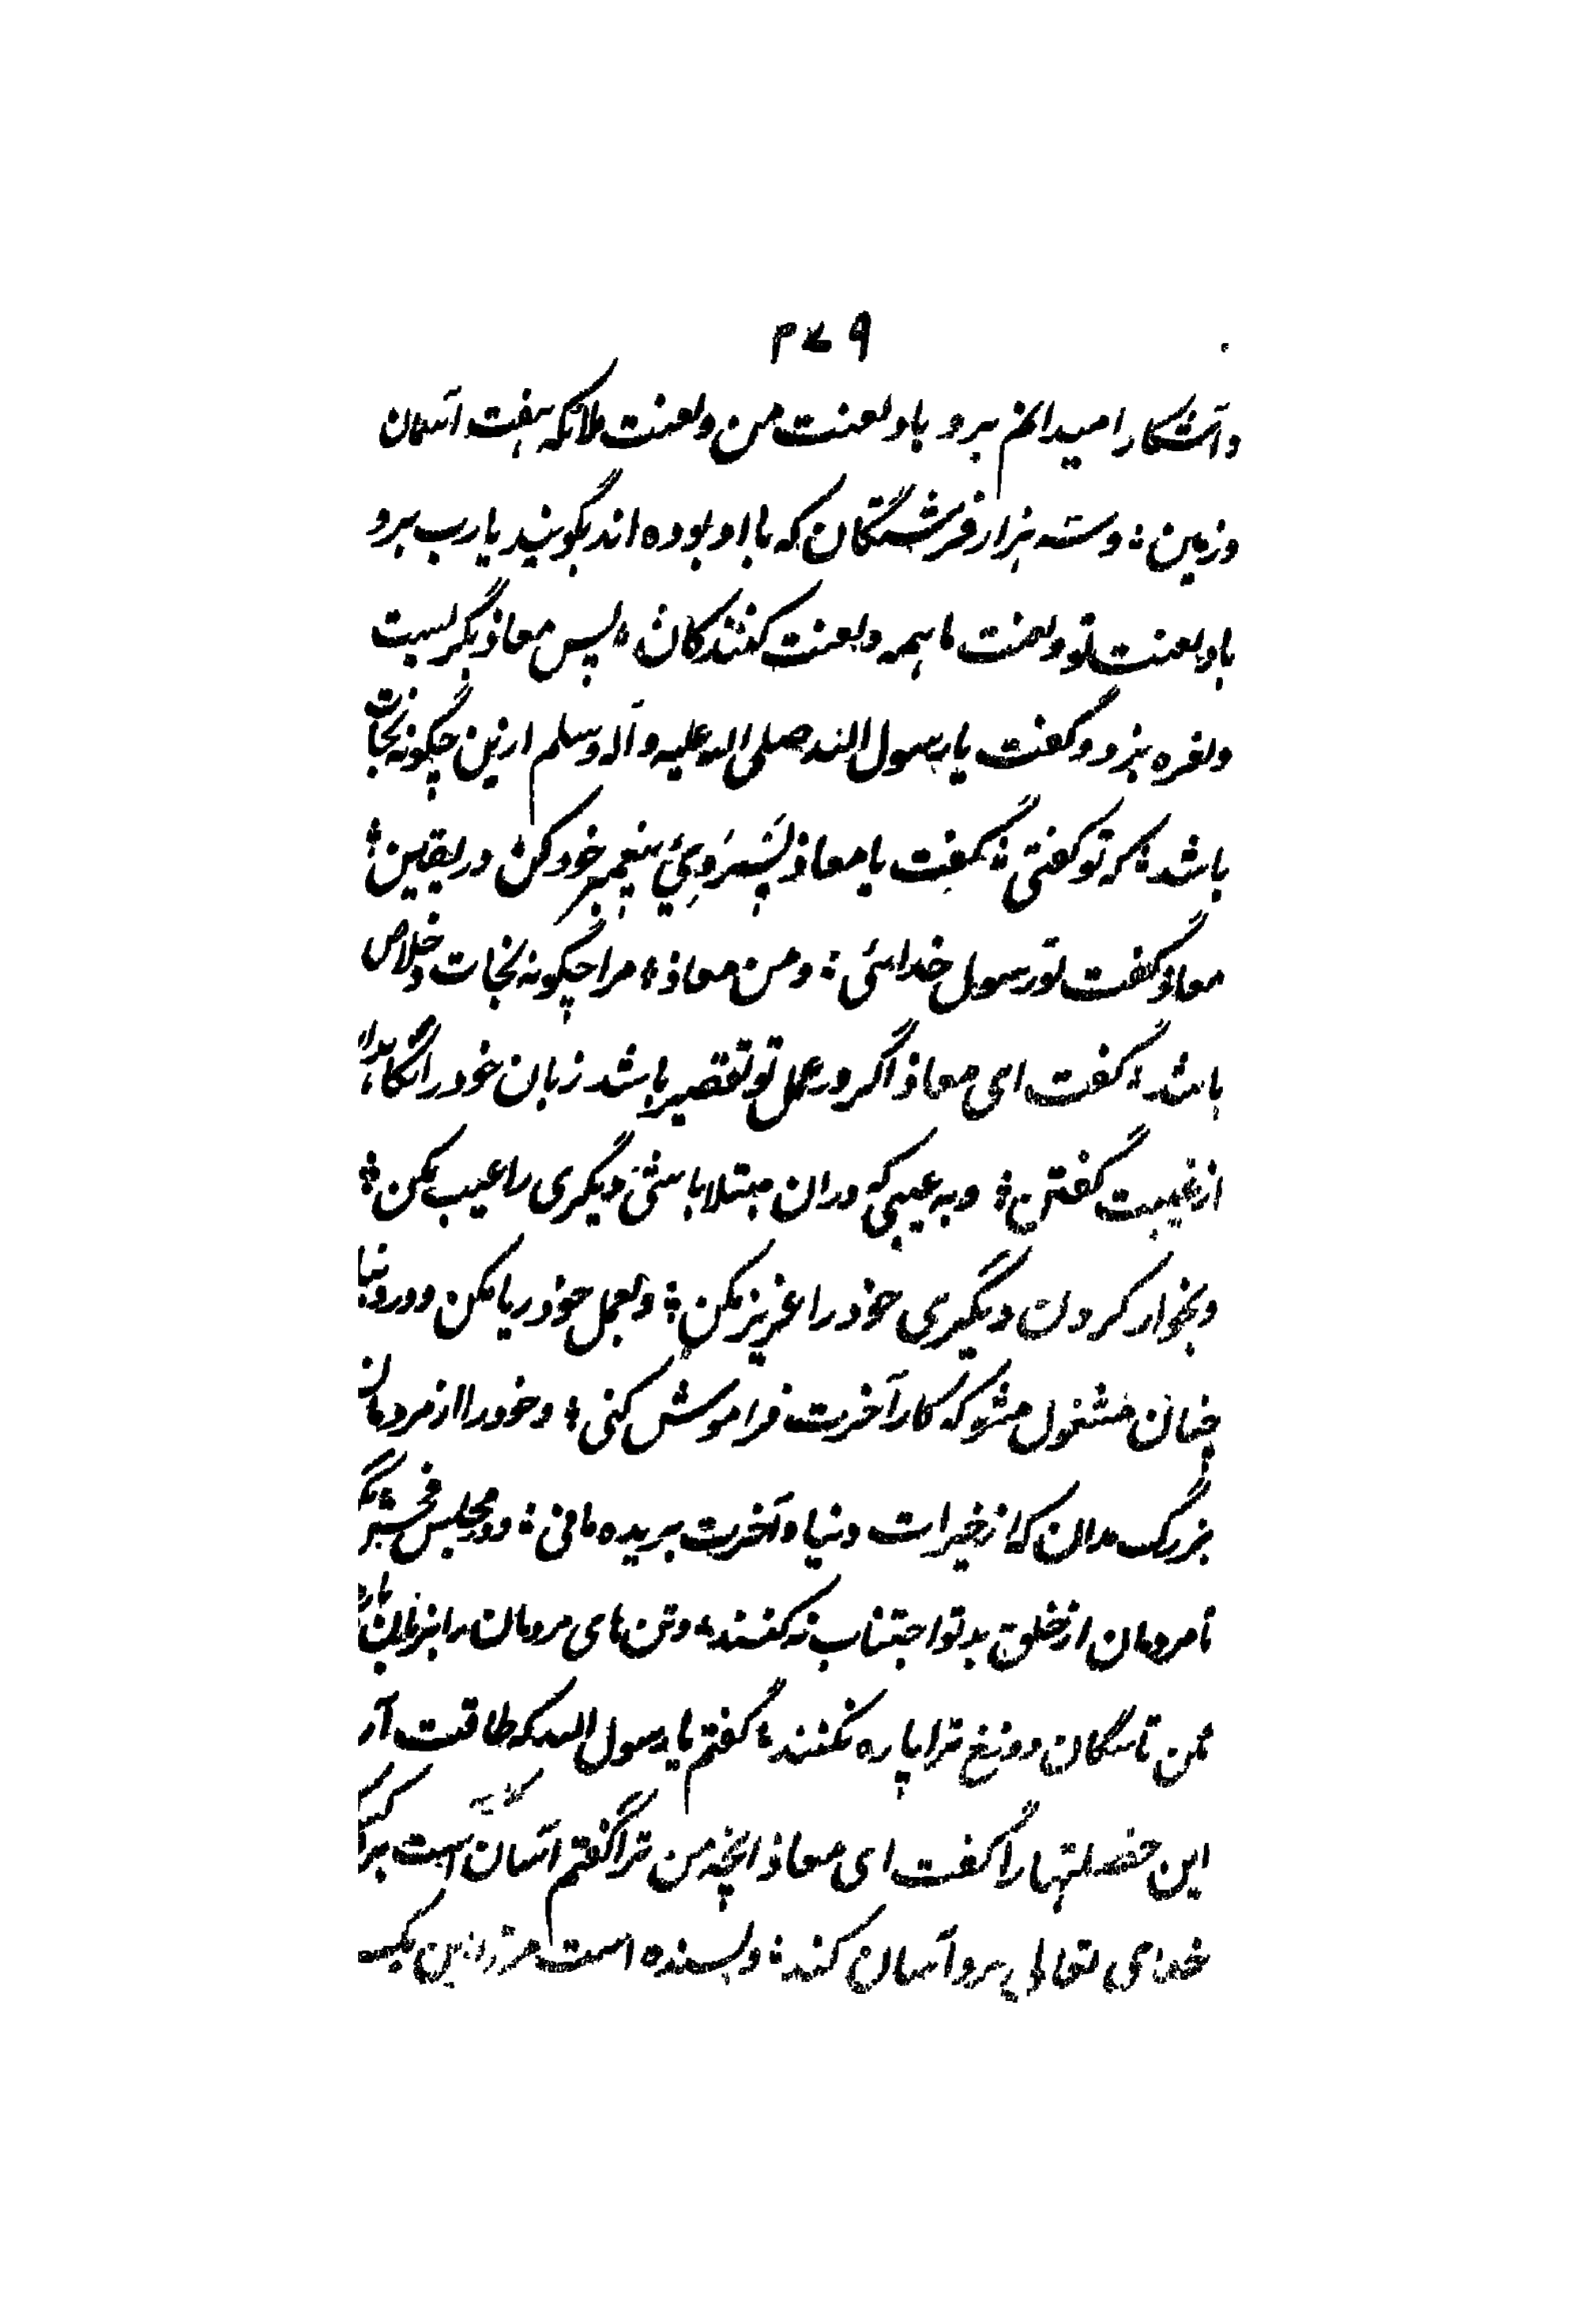 ۳۷۹
و آشکارا میدانم برو باد لعنت من و لعنت ملائکه هفت آسمان
و زمین؛ و سه هزار فرشتگان که با او بوده اند بگویند یا رب برو
باد لعنت تو و لعنت ما همه و لعنت کنندگان؛ پس معاذ بگریست
و نعره بزد و گفت یا رسول الله صلی الله علیه وآله وسلم ازین چگونه نجات
باشد؛ که تو گفتی؛ گفت یا معاذ پَسْرَوِیِ پیغمبر خود کن در یقین؛
معاذ گفت تو رسول خدائی؛ و من معاذ؛ مرا چگونه نجات و خلاص
باشد؛ گفت ای معاذ اگر در عمل تو تقصیر باشد زبان خود را نگاهدار
از غیبت گفتن؛ و به عیبی که دران مبتلا باشی دیگری را عیب مکن؛
و بخوار کردن دیگری خود را عزیز مکن؛ و بعمل خود ریا مکن و در دنیا
چنان مشغول مشو که کار آخرت فراموش کنی؛ و خود را از مردمان
بزرگ مدان که از خیرات دنیا و آخرت بریده مانی؛ و در مجلس فحش مگو
تا مردمان از خلق بد تو اجتناب نه کنند؛ و تن های مردمان را بزبان پاره
مکن تا سگان دوزخ ترا پاره نکنند؛ گفتم یا رسول الله که طاقت آرد
این خصلتها را گفت ای معاذ آنچه من ترا گفتم آسان است بر آنکس
خدای تعالی برو آسان کند؛ و بسنده است مر ترا ازین